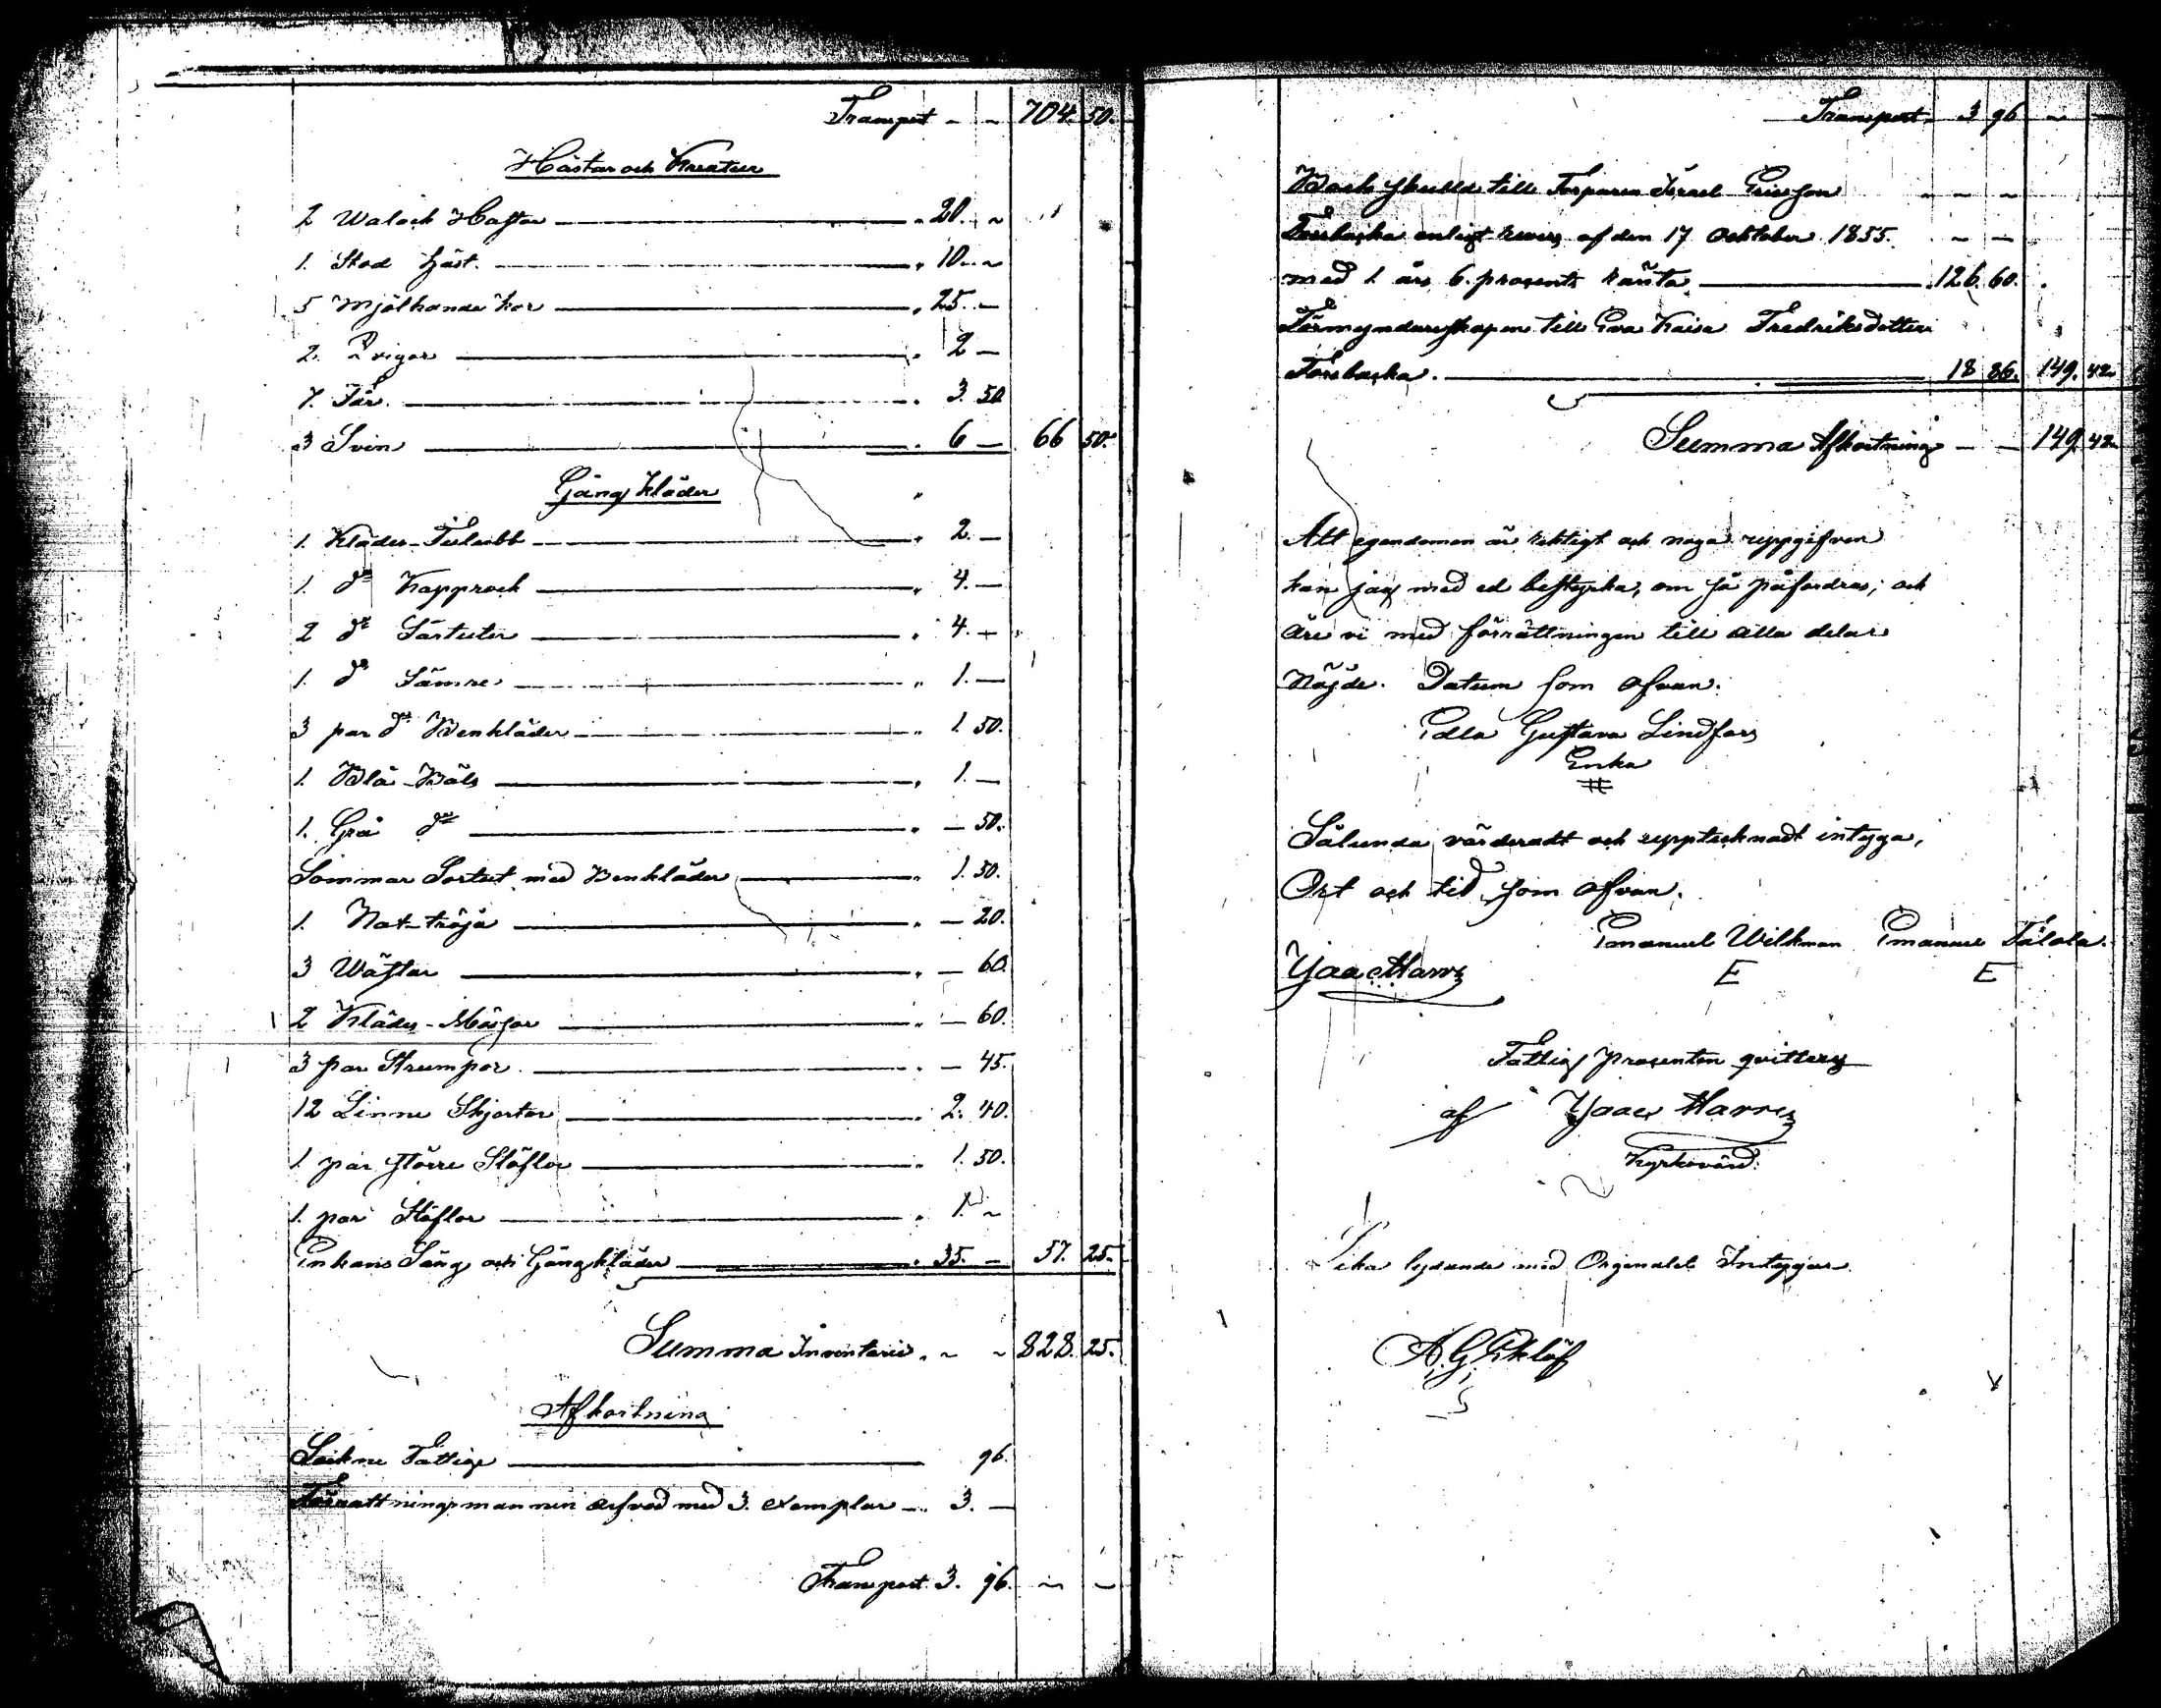 Transport - - 704. 50.
Hästar och Kreatur
2 Walack Hästar " 20. -
1. Stod häst. " 10. -
5 Mjölkande kor " 25. -
2. Qvigor " 2 -
7. Får. " 3. 50
3 Svin " 6 - 66 50.
Gång kläder
1. Kläder-Tulubb " 2. -
1. do Kapprock " 4. -
2 do Särtuter " 4. -
1. do Sämre " 1. -
3 par do Benkläder " 1 50.
1. Blå-Böls " 1. -
1. Grå do " - 50.
Sommar Sortut med Benkläder " 1. 50.
1. Nat-tröja " - 20.
3 Wästar " - 60.
2 Kläder-Mössor " - 60.
3 par Strumpor. " - 45.
12 Linne Skjortor " 2. 40.
1. par större Stöflor " 1. 50.
1. par Stöflor " 1. -
Enkans Säng och Gångkläder " 35. - 57. 25.
Summa Inventarie. - - 828. 25.
Afkortning
Sockne Fattige 96.
Förrättningsmannen arfvod med 3. exemplar - 3. -
Transport 3. 96. - -
Transport 3 96 - -
Boets skulld till Torparen Israel Ericsson - - -
Forsbacka enligt revers af den 17 Ocktober 1855. - -
med 1 års 6. procents ränta 126. 60.
Förmynderskapen till Eva Kaisa Fredriksdotter
Forsbacka. 18 86. 149. 42
Summa Afkortning - - 149. 42
Att egendomen är ricktigt och noga uppgifven
kan jag med ed bestyrka, om så påfordras; och
äre vi med förrättningen till alla delar
Nöjde. Datum som ofvan.
Edla Gustava Lindfors
Enka
Sålunda värderadt och upptecknadt intyga,
Ort och tid som ofvan.
Emanuel Wilkman Emanuel Tålola.
Isaac Harv
E E
Fattig procenten qvitteras
af Isaac Harv
Kyrkovärd.
Lika lydande med Orginalet Intygar
A. G. Eklöf